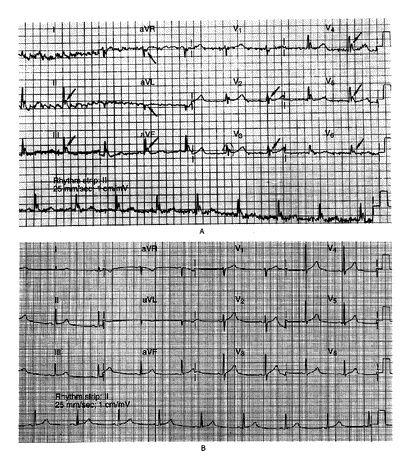 I aVR V1 V4
II aVL V2 V5
III aVF V3 V6
Rhythm strip: II
25 mm/sec; 1 cm/mV
A
I aVR V1 V4
II aVL V2 V5
III aVF V3 V6
Rhythm strip: II
25 mm/sec; 1 cm/mV
B